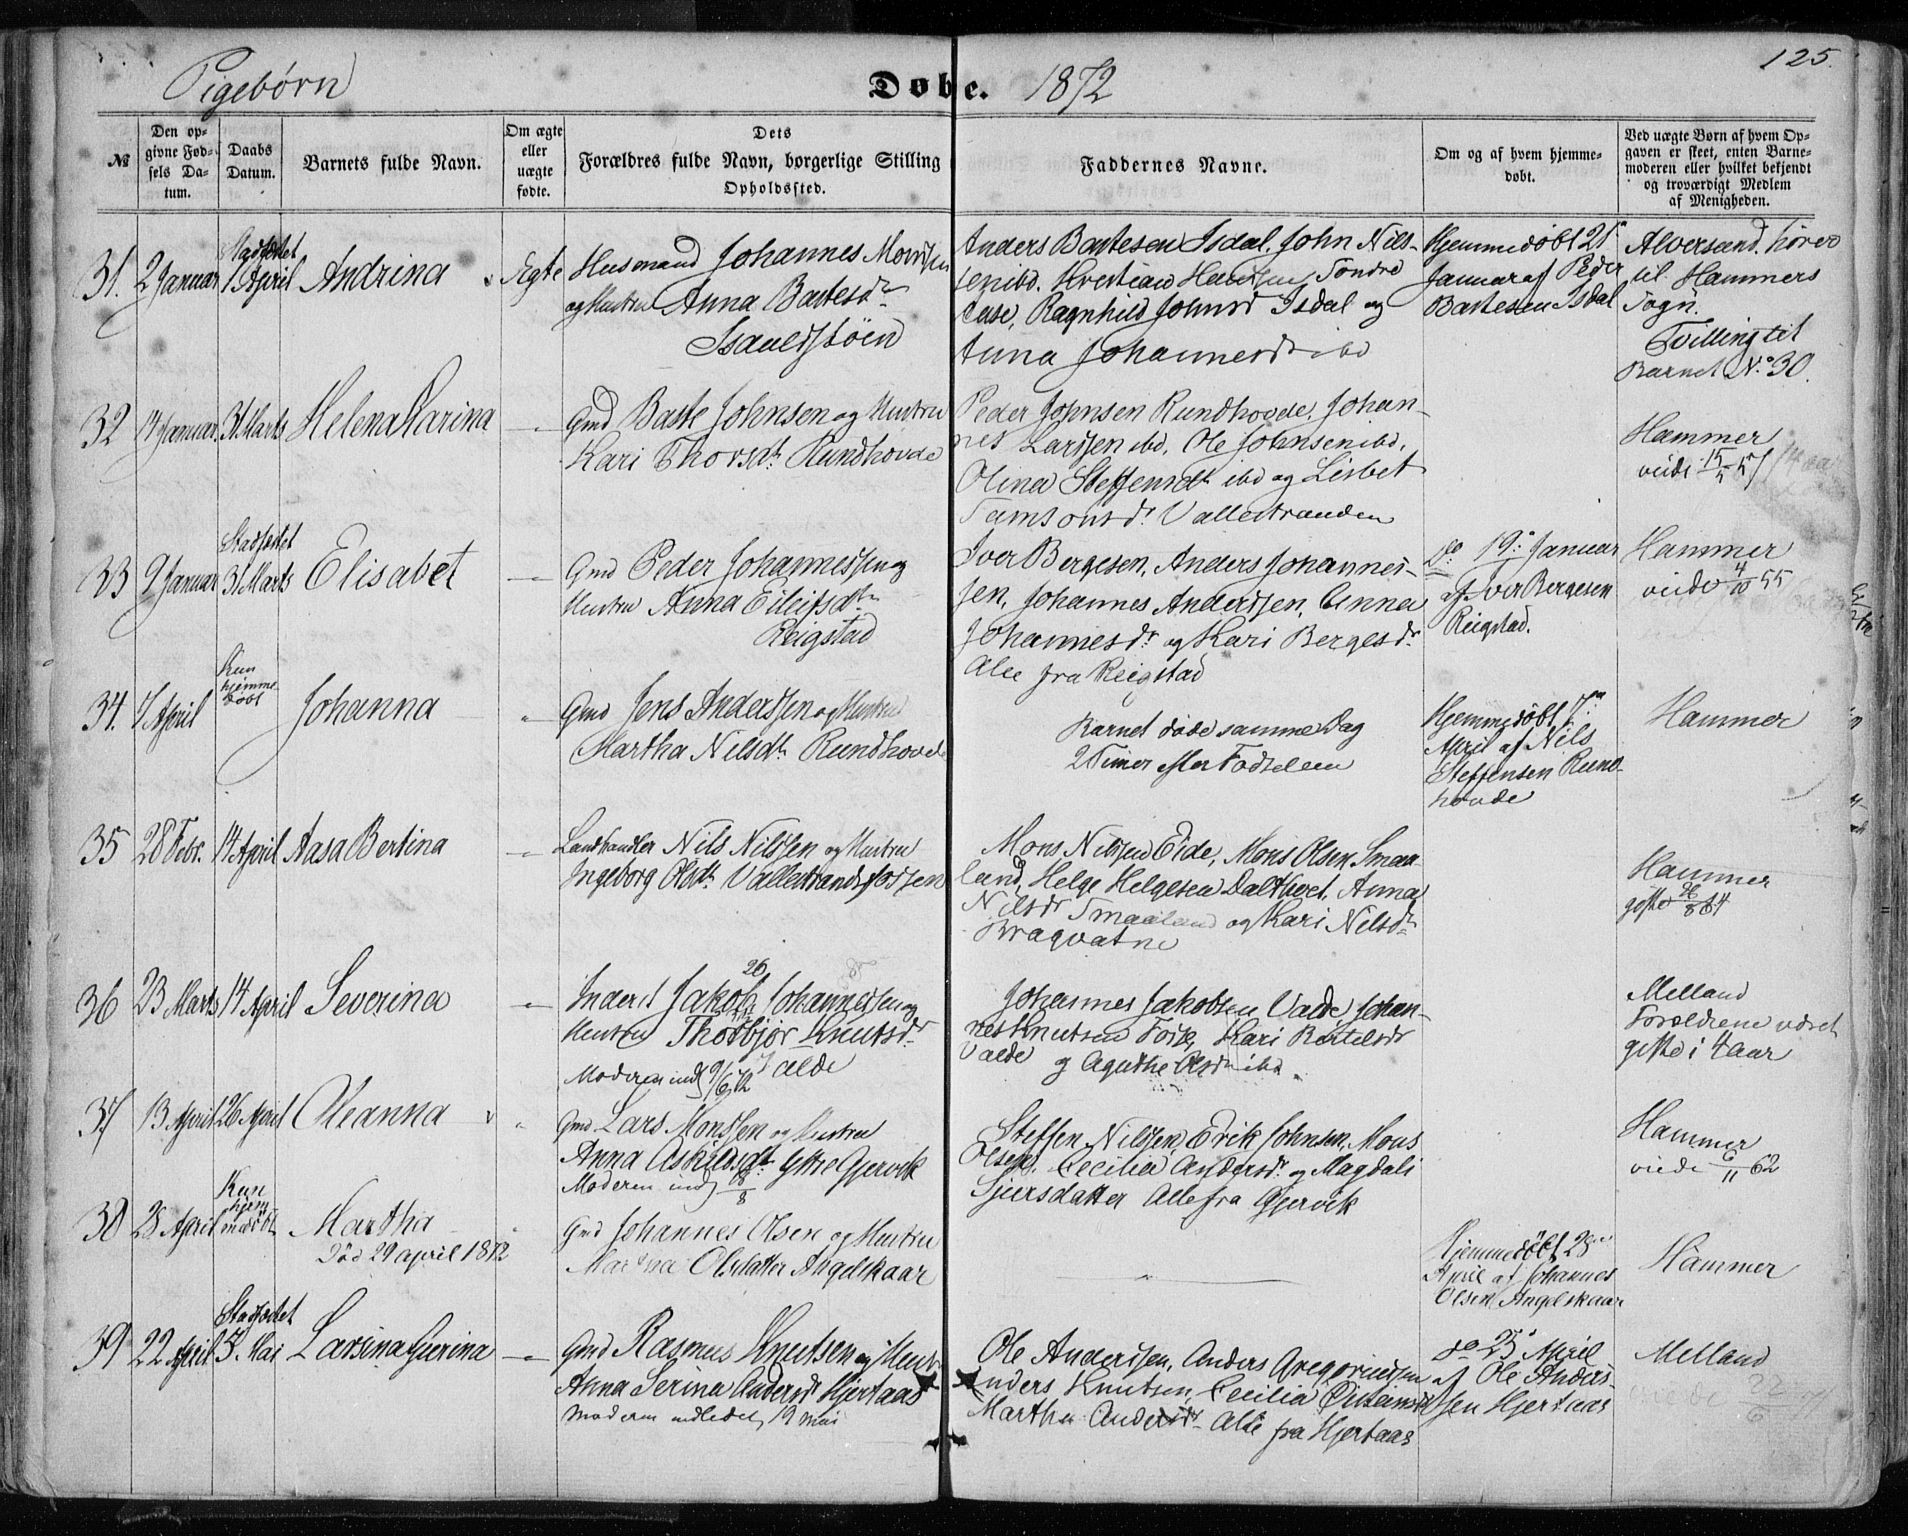 Pigebørn
Døbe.
1872
125.
№
Den opgivne Fødsels Datum.
Daabs Datum.
Barnets fulde Navn.
Om ægte eller uægte fødte.
Dets Forældres fulde Navn, borgerlige Stilling Opholdssted.
Faddernes Navne.
Om og af hvem hjemmedøbt.
Ved uægte Børn af hvem Opgaven er skeet, enten Barnemoderen eller hvilket bekjendt og troværdigt Medlem af Menigheden.
31. 2 Januar
Stadfæstet
1 April
Andrina
Ægte
Husmand Johannes Monssen
og Hustru Anna Bastesdr
Isdal. John Nils-
Anders Bastesen
sen ibd.
Ragnhild Johnsdr Isdal og
Anna Johannesdr ibd
Hjemmedøbt 2de
Januar af Peder
Bastesen Isdal
Alversund hører
til Hammers
Sogn.
Tvilling til
Barnet No 30.
32 14 Januar 31 Marts Helena Karina
Gmd Baste Johnsen og Hustru
Kari Thorsdtr Rundhovde
Peder Johnsen Rundhovde, Johan-
nes Larssen ibd, Ole Johnsen ibd,
Olina Steffensdtr ibd og Lisbet
Samsonsdr Vallestranden
Hammer
viede 15/5 57
33 9 Januar
Stadfæstet
31 Marts
Elisabet
Gmd Peder Johannessen og
Hustru Anna Eilifsdtr
Reigstad
Iver Bergesen, Anders Johannes-
sen, Johannes Anderssen, Anna
Johannesdr og Kari Bergesdr
Alle fra Reigstad
Do 19de Januar
af Iver Bergesen
Reigstad.
Hammer
viede 4/10 55
34. 7 April
Kun
hjemme-
døbt
Johanna
Gmd Jens Anderssen og Hustru
Martha Nilsdtr Rundhovde
Barnet døde samme Dag
2 Timer efter Fødselen
Hjemmedøbt 7de
April af Nils
Steffensen Rund-
hovde
Hammer
35 28 Febr. 14 April Aasa Bertina
Landhandler Nils Nilssen og Hustru
Ingeborg Olsdtr Vallestrandsfossen
Mons Nilssen Eide, Mons Olsen Smaa-
land, Helge Helgesen Dalthvet, Anna
Nilsdr Smaaland og Kari Nilsdtr
Bragvatne
Hammer
gifte 26/8 64
36 23 Marts 14 April Severina
Inderst Jakob Johannessen og
26
Hustru Thorbjør Knutsdr
Valde
Moderen indl 9/6 72
Johannes Jakobsen Valde, Johan-
nes Knutsen Fosse, Kari Bertelsdr
Valde og Agathe Olsdtr ibd.
Melland
Forældrene været
gifte i 4 aar
37 13 April 26 April Oleanna
Gmd Lars Monssen og Hustru
Anna Askildsdtr Ytre Gjervik
Moderen indl 18/8
Steffen Nilssen, Erik Johnsen, Mons
Olsen, Cecilia Andersdr og Magdali
Sjursdatter Alle fra Gjervik
Hammer
viede 6/11 62
38 28 April
Kun
hjem-
medøbt
Martha
Død 29 april 1872
Gmd Johannes Olsen og Hustru
Martha Olsdatter Angelskaar
Hjemmedøbt 28de
April af Johannes
Olsen Angelskaar
Hammer
39 22 April
Stadfæstet
5. Mai
Larsina Gurina
Gmd Rasmus Knutsen og Hustru
Anna Serina Andersdr Hjertaas
Moderen indledet 19 mai
Ole Anderssen, Anders Gregoriussen
Anders Knutsen, Cecilia
Martha Andersdr Alle fra Hjertaas
do 25de April
af Ole Anders-
sen Hjertaas
Melland
viede 22/6